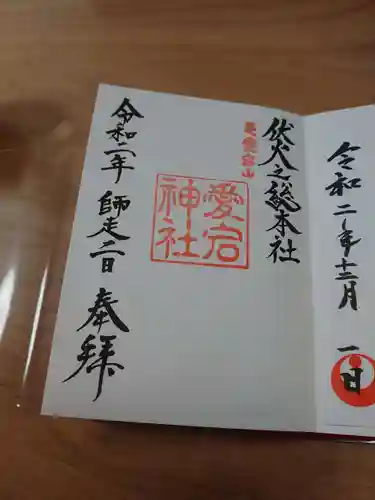 令和二年十二月
一日
伏火之総本社
愛宕山
愛宕
神社
令和二年 師走二日
奉拝